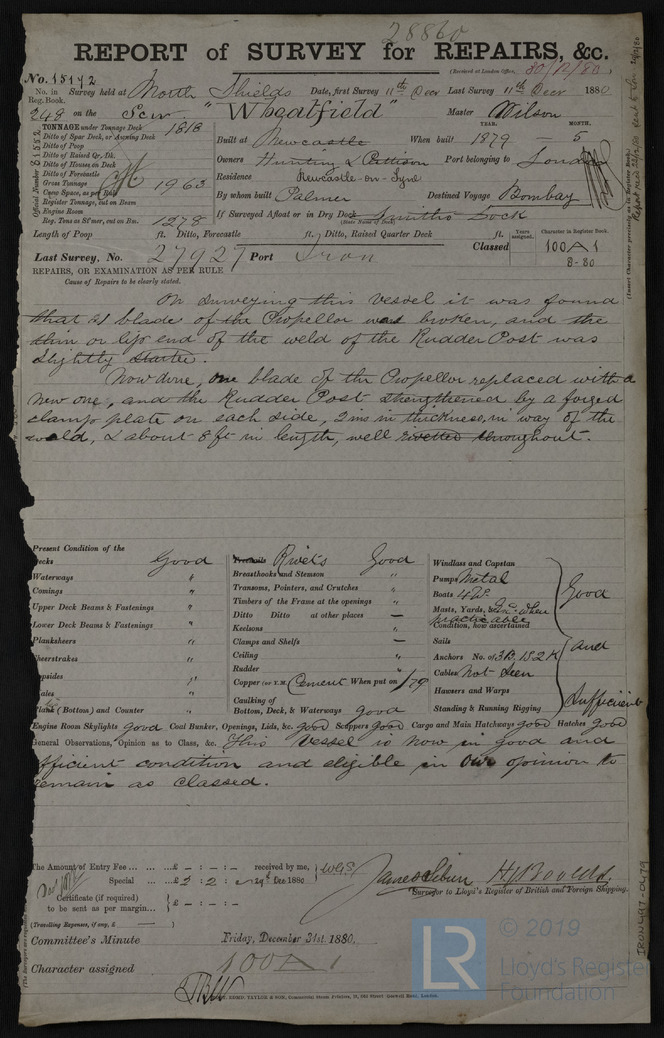 28860
REPORT of SURVEY for REPAIRS, &c.
(Received at London Office, 30/12/80)
No. 15142
No. in Reg. Book. Survey held at North Shields Date, first Survey 11th Decr Last Survey 11th Decr 1880
248 on the Scw "Wheatfield" Master Wilson
TONNAGE under Tonnage Deck 1818
Ditto of Spar Deck, or Awning Deck
Ditto of Poop
Ditto of Raised Qr. Dk.
Ditto of Houses on Deck
Ditto of Forecastle
Gross Tonnage 1963
Crew Space, as per Rule
Register Tonnage, cut on Beam
Engine Room
Reg. Tons as St'mer, cut on Bm. 1278
Official Number 81552
YEAR. MONTH.
Built at Newcastle When built 1879 5
Owners Hunting & Pattison Port belonging to London
Residence Newcastle-on-Tyne
By whom built Palmer Destined Voyage Bombay
If Surveyed Afloat or in Dry Dock Smiths Dock
(State Name of Dock.)
Length of Poop ft. Ditto, Forecastle ft. Ditto, Raised Quarter Deck ft.
Years assigned. Character in Register Book.
Last Survey, No. 27927 Port Iron Classed 100A1
8-80
REPAIRS, OR EXAMINATION AS PER RULE
Cause of Repairs to be clearly stated.
On surveying this vessel it was found
that a blade of the Propellor was broken, and the
thin or lip end of the weld of the Rudder Post was
slightly started.
Now done, one blade of the Propellor replaced with a
new one, and the Rudder Post strengthened by a forged
clamp plate on each side, 2 ins in thickness, in way of the
weld, & about 8 ft in length, well rivetted throughout.
Present Condition of the
Decks Good
Waterways "
Comings "
Upper Deck Beams & Fastenings "
Lower Deck Beams & Fastenings "
Planksheers "
Sheerstrakes "
Topsides "
Wales "
Plank (Bottom) and Counter "
Treenails Rivets Good
Breasthooks and Stemson "
Transoms, Pointers, and Crutches "
Timbers of the Frame at the openings "
Ditto Ditto at other places —
Keelsons "
Clamps and Shelfs —
Ceiling "
Rudder "
Copper (or Y.M.) Cement When put on /79
Caulking of
Bottom, Deck, & Waterways good
Windlass and Capstan
Pumps Metal
Boats 4 W.
Masts, Yards, &c. when practicable
Condition, how ascertained
Sails
Anchors No. of 3B. 1S. 2K
Cables Not Seen
Hawsers and Warps
Standing & Running Rigging
Good
and
Sufficient
Engine Room Skylights good Coal Bunker, Openings, Lids, &c. good Scuppers good Cargo and Main Hatchways good Hatches good
General Observations, Opinion as to Class, &c. This Vessel is now in good and
efficient condition and eligible in our opinion to
remain as classed.
The Amount of Entry Fee ... ... £ - : - : - received by me,
Special ... ... £ 2 : 2 : - 29th Dec 1880
Certificate (if required)
to be sent as per margin... £ - : - : -
(Travelling Expenses, if any, £ —)
H J Boolds.
Surveyor to Lloyd's Register of British and Foreign Shipping.
Committee's Minute Friday, December 31st. 1880.
Character assigned 100A1
© 2019
LR
Lloyd's Register
Foundation
IRON497-0479